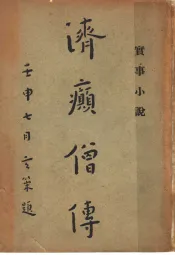 實事小說
濟癲僧傳
壬申七月玄策題